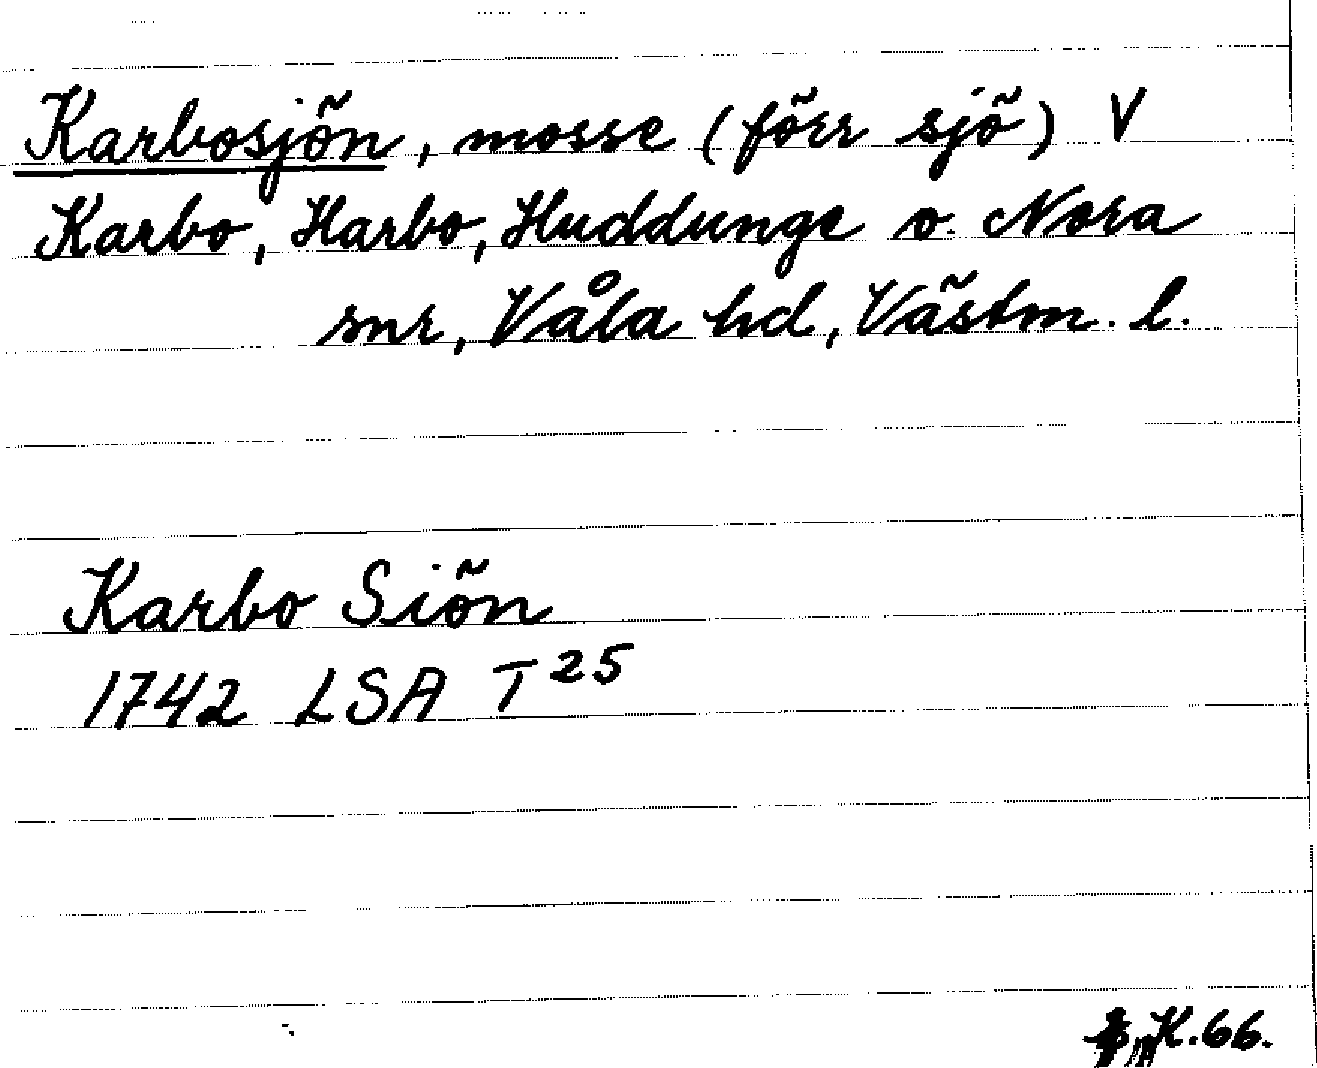 Karbosjön, mosse (förr sjö) V
Karbo, Harbo, Huddunge o. Nora
snr, Våla hd, Västm. l.
Karbo Siön
1742 LSA T 25
K.66.